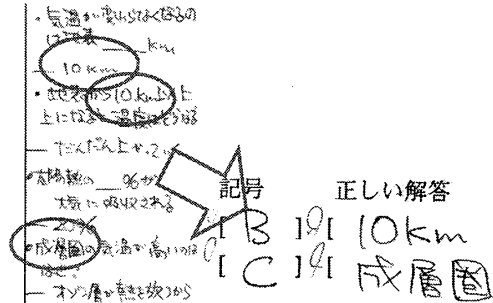 ・気温が変わらなくなるの
は地表____km
— 10km
・地表から10kmより上
上になると温度はどうなる
— だんだん上がって
・太陽熱の__%が
大気に吸収される
20%
・成層圏の気温が高いのは
— オゾン層が熱を放つから
記号 正しい解答
[ B ] [ 10km
[ C ] [ 成層圏